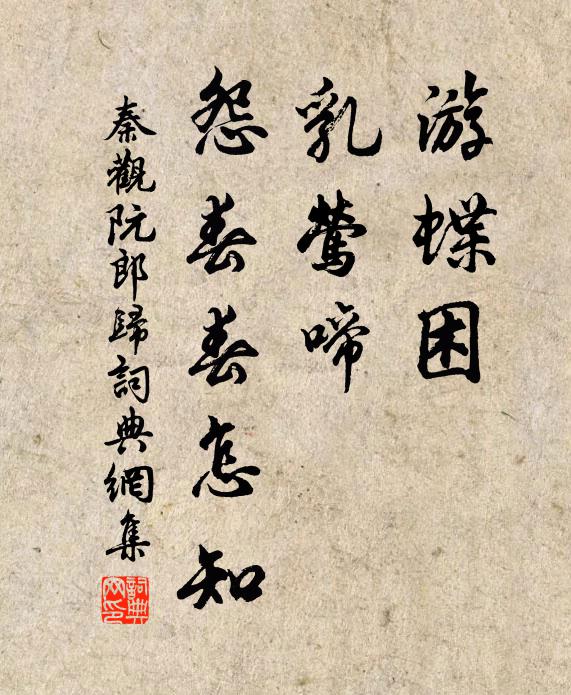 游蝶困
乳莺啼
怨春春怎知
秦觀阮郎歸詞典網集
詞典
网印